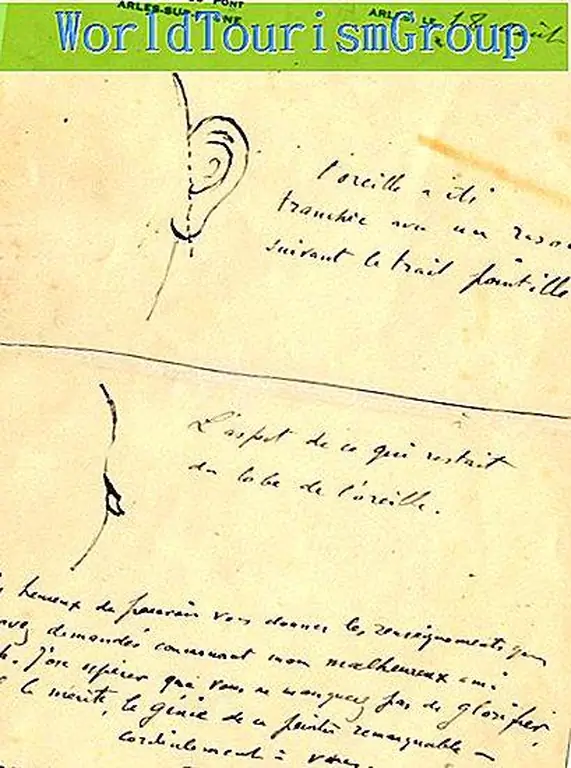 PONT
ARLES-SUR-RHONE
ARLES, LE 18
WorldTourismGroup
l'oreille a été
tranchée avec un raso
suivant le trait pointillé
L'aspect de ce qui restait
du lobe de l'oreille.
heureux de pouvoir vous donner les renseignements que
avez demandés concernant mon malheureux ami
J'ose espérer que vous ne manquerez pas de glorifier
le mérite, le génie de ce peintre remarquable —
cordialement à vous.